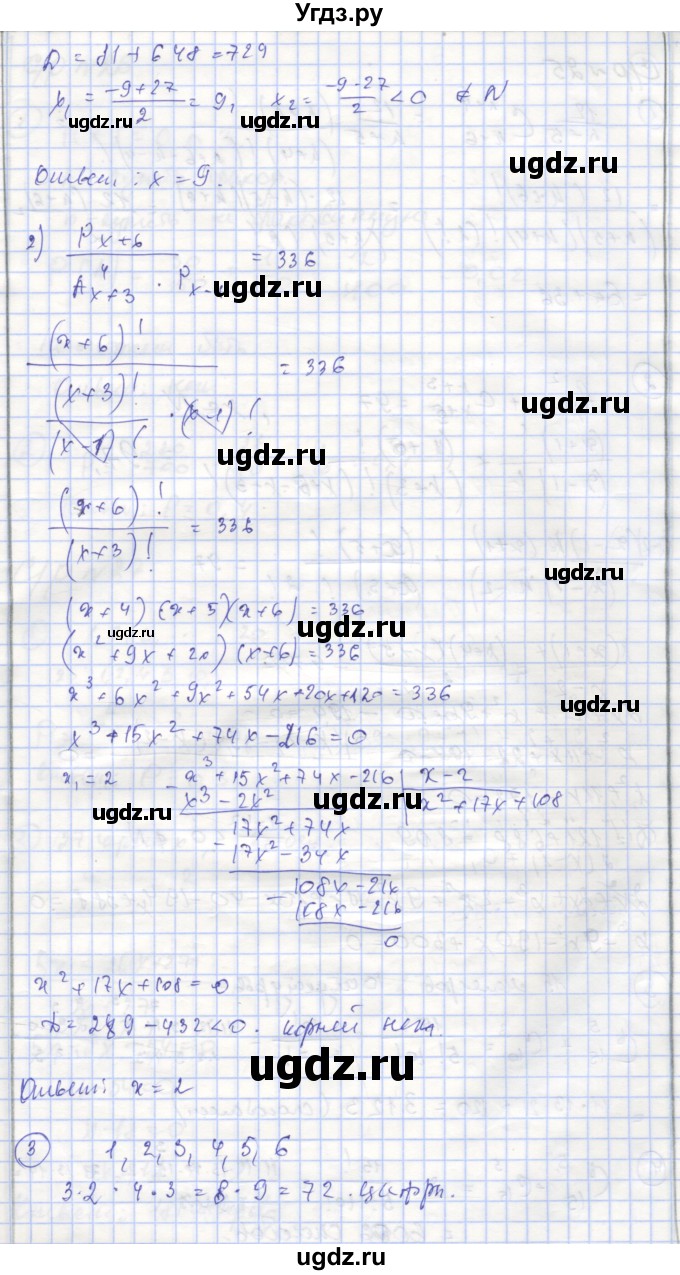 Угдз.ру
D = 81 + 648 = 729
x₁ = (-9+27)/2 = 9, x₂ = (-9-27)/2 < 0 ∉ N
ugdz.ru ugdz.ru
ugdz.ru
Ответ: x = 9.
2) P x+6 / (A⁴ x+3 · P x-) = 336
ugdz.ru
(x+6)! / ((x+3)! / (x-1)! · (x-1)!) = 336
ugdz.ru
ugdz.ru
(x+6)! / (x+3)! = 336
ugdz.ru
(x+4)(x+5)(x+6) = 336
ugdz.ru ugdz.ru
(x² + 9x + 20)(x+6) = 336
x³ + 6x² + 9x² + 54x + 20x + 120 = 336
ugdz.ru
x³ + 15x² + 74x - 216 = 0
x₁ = 2 - x³ + 15x² + 74x - 216 | x - 2
x³ - 2x² x² + 17x + 108
ugdz.ru ugdz.ru
17x² + 74x
- 17x² - 34x
108x - 216
- 108x - 216
0
x² + 17x + 108 = 0
D = 289 - 432 < 0. корней нет.
ugdz.ru
Ответ: x = 2
3 1, 2, 3, 4, 5, 6
3·2·4·3 = 8·9 = 72. цифры.
ugdz.ru ugdz.ru
ugdz.ru